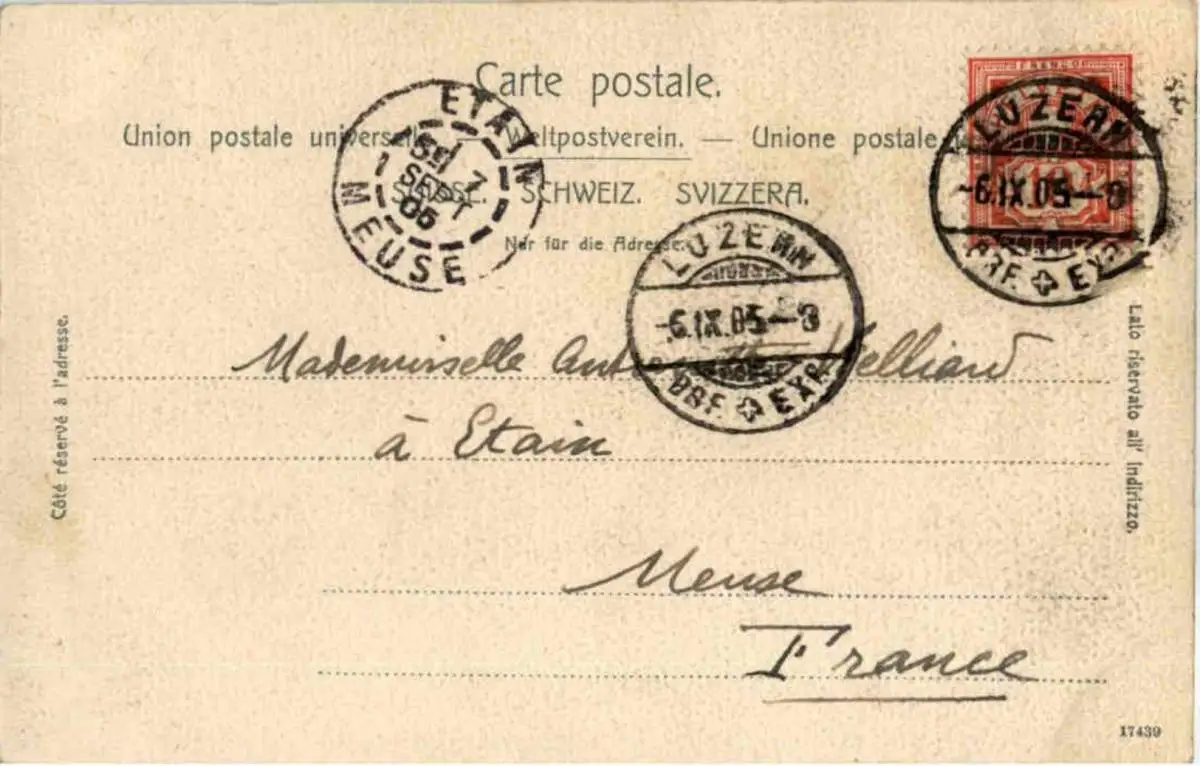 Carte postale.
Union postale universelle. — Weltpostverein. — Unione postale
SUISSE. SCHWEIZ. SVIZZERA.
Nur für die Adresse.
ETAIN
7
SEPT
05
MEUSE
FRANCO
LUZERN
-6.IX.05-8
BRF. EXP.
LUZERN
-6.IX.05-8
BRF. EXP.
Côté réservé à l'adresse.
Lato riservato all' indirizzo.
Mademoiselle
à Etain
Meuse
France
17439